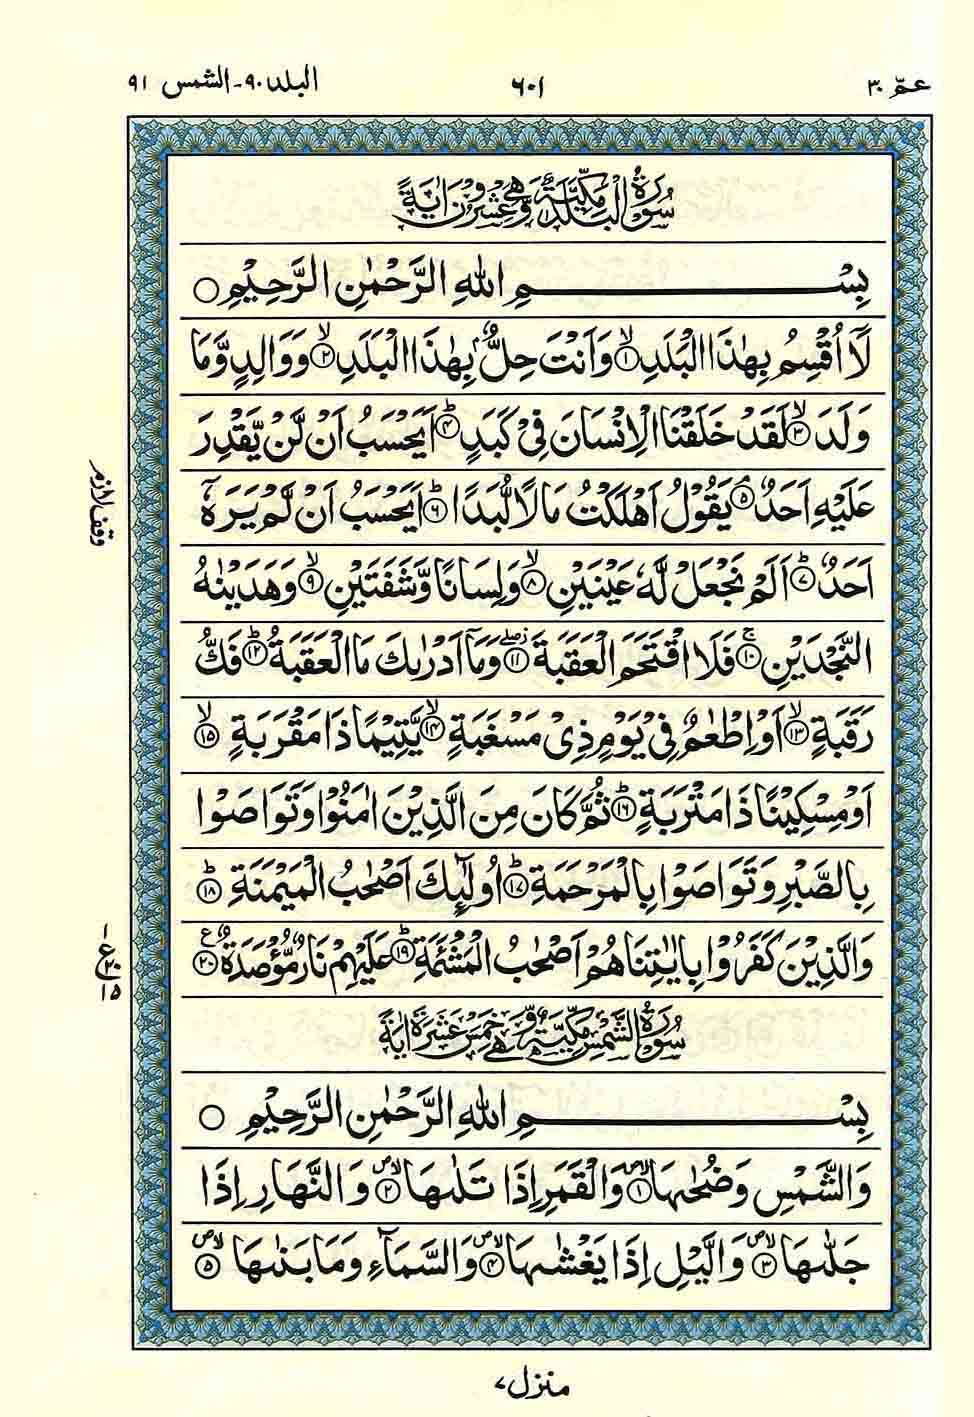 عمّ ٣٠
٦٠١
البلد ٩٠-الشمس ٩١
سُوْرَةُ الْبَلَدِ مَكِّيَّةٌ وَّهِيَ عِشْرُوْنَ اٰيَةً
بِسْمِ اللّٰهِ الرَّحْمٰنِ الرَّحِيْمِ ○
لَاۤ اُقْسِمُ بِهٰذَا الْبَلَدِ ۙ﴿١﴾ وَاَنْتَ حِلٌّۢ بِهٰذَا الْبَلَدِ ۙ﴿٢﴾ وَوَالِدٍ وَّمَا
وَلَدَ ۙ﴿٣﴾ لَقَدْ خَلَقْنَا الْاِنْسَانَ فِیْ كَبَدٍ ؕ﴿٤﴾ اَيَحْسَبُ اَنْ لَّنْ يَّقْدِرَ
عَلَيْهِ اَحَدٌ ۘ﴿٥﴾ يَقُوْلُ اَهْلَكْتُ مَالًا لُّبَدًا ؕ﴿٦﴾ اَيَحْسَبُ اَنْ لَّمْ يَرَهٗۤ
اَحَدٌ ؕ﴿٧﴾ اَلَمْ نَجْعَلْ لَّهٗ عَيْنَيْنِ ۙ﴿٨﴾ وَلِسَانًا وَّشَفَتَيْنِ ۙ﴿٩﴾ وَهَدَيْنٰهُ
النَّجْدَيْنِ ۚ﴿١٠﴾ فَلَا اقْتَحَمَ الْعَقَبَةَ ﴿١١﴾ وَمَاۤ اَدْرٰىكَ مَا الْعَقَبَةُ ؕ﴿١٢﴾ فَكُّ
رَقَبَةٍ ۙ﴿١٣﴾ اَوْ اِطْعٰمٌ فِیْ يَوْمٍ ذِیْ مَسْغَبَةٍ ۙ﴿١٤﴾ يَّتِيْمًا ذَا مَقْرَبَةٍ ۙ﴿١٥﴾
اَوْ مِسْكِيْنًا ذَا مَتْرَبَةٍ ؕ﴿١٦﴾ ثُمَّ كَانَ مِنَ الَّذِيْنَ اٰمَنُوْا وَتَوَاصَوْا
بِالصَّبْرِ وَتَوَاصَوْا بِالْمَرْحَمَةِ ؕ﴿١٧﴾ اُولٰٓئِكَ اَصْحٰبُ الْمَيْمَنَةِ ؕ﴿١٨﴾
وَالَّذِيْنَ كَفَرُوْا بِاٰيٰتِنَا هُمْ اَصْحٰبُ الْمَشْـَٔمَةِ ؕ﴿١٩﴾ عَلَيْهِمْ نَارٌ مُّؤْصَدَةٌ ﴿٢٠﴾
سُوْرَةُ الشَّمْسِ مَكِّيَّةٌ وَّهِيَ خَمْسَ عَشَرَةَ اٰيَةً
بِسْمِ اللّٰهِ الرَّحْمٰنِ الرَّحِيْمِ ○
وَالشَّمْسِ وَضُحٰىهَا ﴿١﴾ وَالْقَمَرِ اِذَا تَلٰىهَا ﴿٢﴾ وَالنَّهَارِ اِذَا
جَلّٰىهَا ﴿٣﴾ وَالَّيْلِ اِذَا يَغْشٰىهَا ﴿٤﴾ وَالسَّمَآءِ وَمَا بَنٰىهَا ﴿٥﴾
وقف لازم
ع
٢٠
١٥
منزل ٧